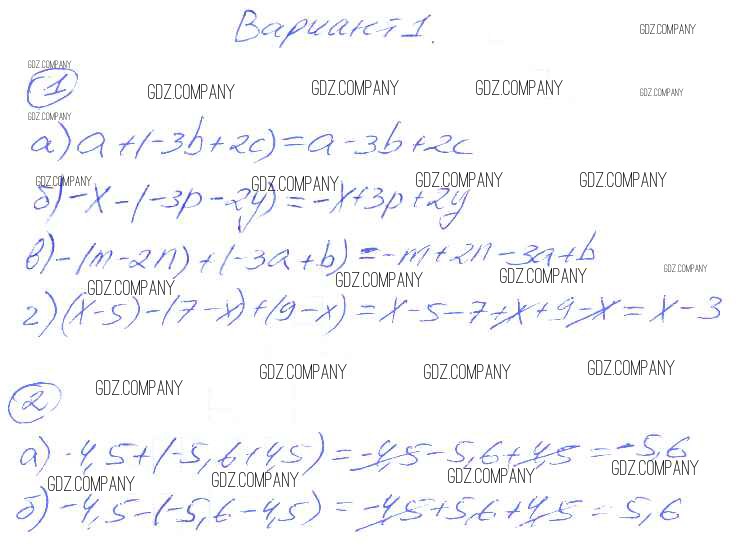 Вариант 1.
GDZ.COMPANY
GDZ.COMPANY
1
GDZ.COMPANY GDZ.COMPANY GDZ.COMPANY GDZ.COMPANY
GDZ.COMPANY
а) a+(-3b+2c)=a-3b+2c
GDZ.COMPANY GDZ.COMPANY GDZ.COMPANY GDZ.COMPANY
б) -x-(-3p-2y)=-x+3p+2y
в) -(m-2n)+(-3a+b)=-m+2n-3a+b
GDZ.COMPANY GDZ.COMPANY GDZ.COMPANY GDZ.COMPANY
г) (x-5)-(7-x)+(9-x)=x-5-7+x+9-x=x-3
GDZ.COMPANY GDZ.COMPANY GDZ.COMPANY GDZ.COMPANY
2
а) -4,5+(-5,6+4,5)=-4,5-5,6+4,5=-5,6
GDZ.COMPANY GDZ.COMPANY GDZ.COMPANY GDZ.COMPANY
б) -4,5-(-5,6-4,5)=-4,5+5,6+4,5=5,6